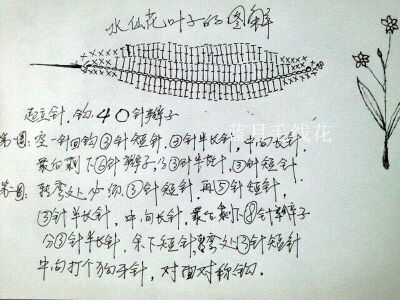 水仙花叶子的图解
起立针,钩40针辫子
第一圈:空一针回钩③针短针,③针半长针,中间长针,
最后剩下⑥针辫子,分③针半长针,③针短针
转弯处加③针短针,再⑤针短针,
③针半长针,中间长针,最后剩下⑧针辫子
分③针半长针,余下短针,转弯处③针短针
中间打个狗牙针,对面对称钩.